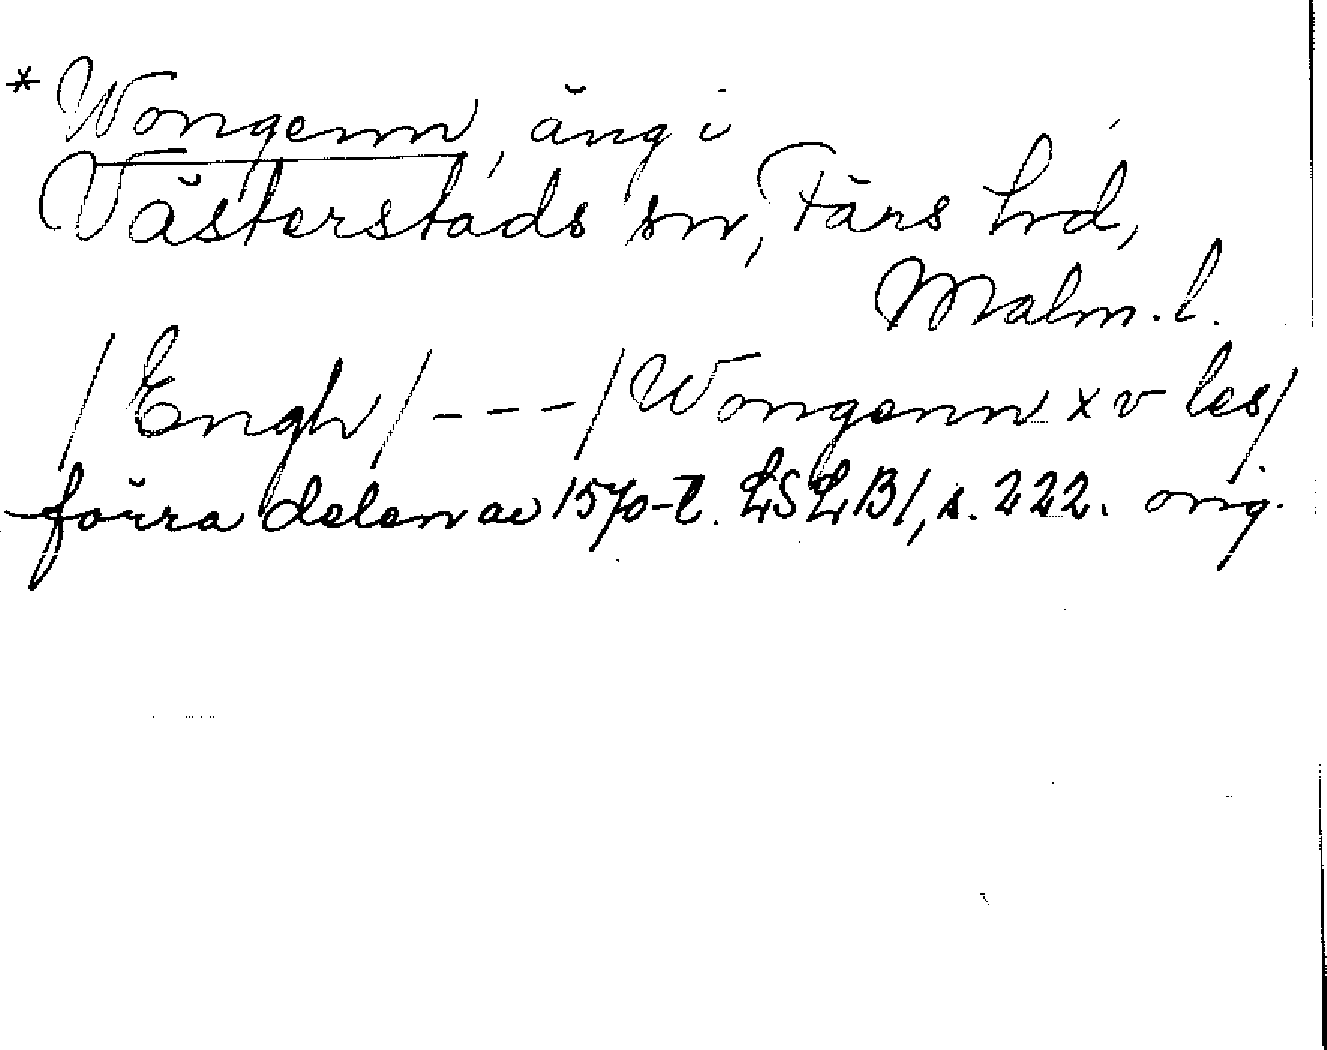 * Wongenn, äng i
Västerstads sn, Färs hd,
Malm. l.
/Engh/ - - - /Wongenn x v les/
förra delen av 1570-t. LSLB1, s. 222. orig.